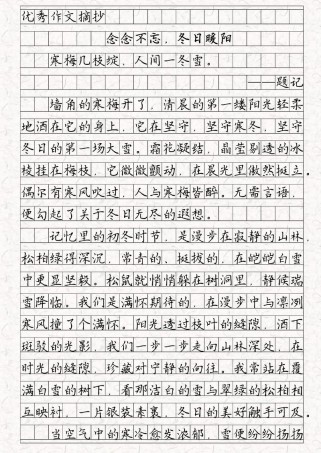 优秀作文摘抄
念念不忘，冬日暖阳
寒梅几枝绽，人间一冬雪。
——题记
墙角的寒梅开了，清晨的第一缕阳光轻柔
地洒在它的身上，它在坚守，坚守寒冬，坚守
冬日的第一场大雪。霜花凝结，晶莹剔透的冰
枝挂在梅枝，它微微颤动，在晨光里傲然挺立。
偶尔有寒风吹过，人与寒梅皆醉。无需言语，
便勾起了关于冬日无尽的遐想。
记忆里的初冬时节，是漫步在寂静的山林，
松柏绿得深沉，常青的、挺拔的，在皑皑白雪
中更显坚毅。松鼠就悄悄躲在树洞里，静候瑞
雪降临。我们是满怀期待的，在漫步中与凛冽
寒风撞了个满怀。阳光透过枝叶的缝隙，洒下
斑驳的光影，我们一步一步走向山林深处，在
时光的缝隙，珍藏对宁静的向往。我常站在覆
满白雪的树下，看那洁白的雪与翠绿的松柏相
互映衬，一片银装素裹，冬日的美好触手可及。
当空气中的寒冷愈发浓郁，雪便纷纷扬扬